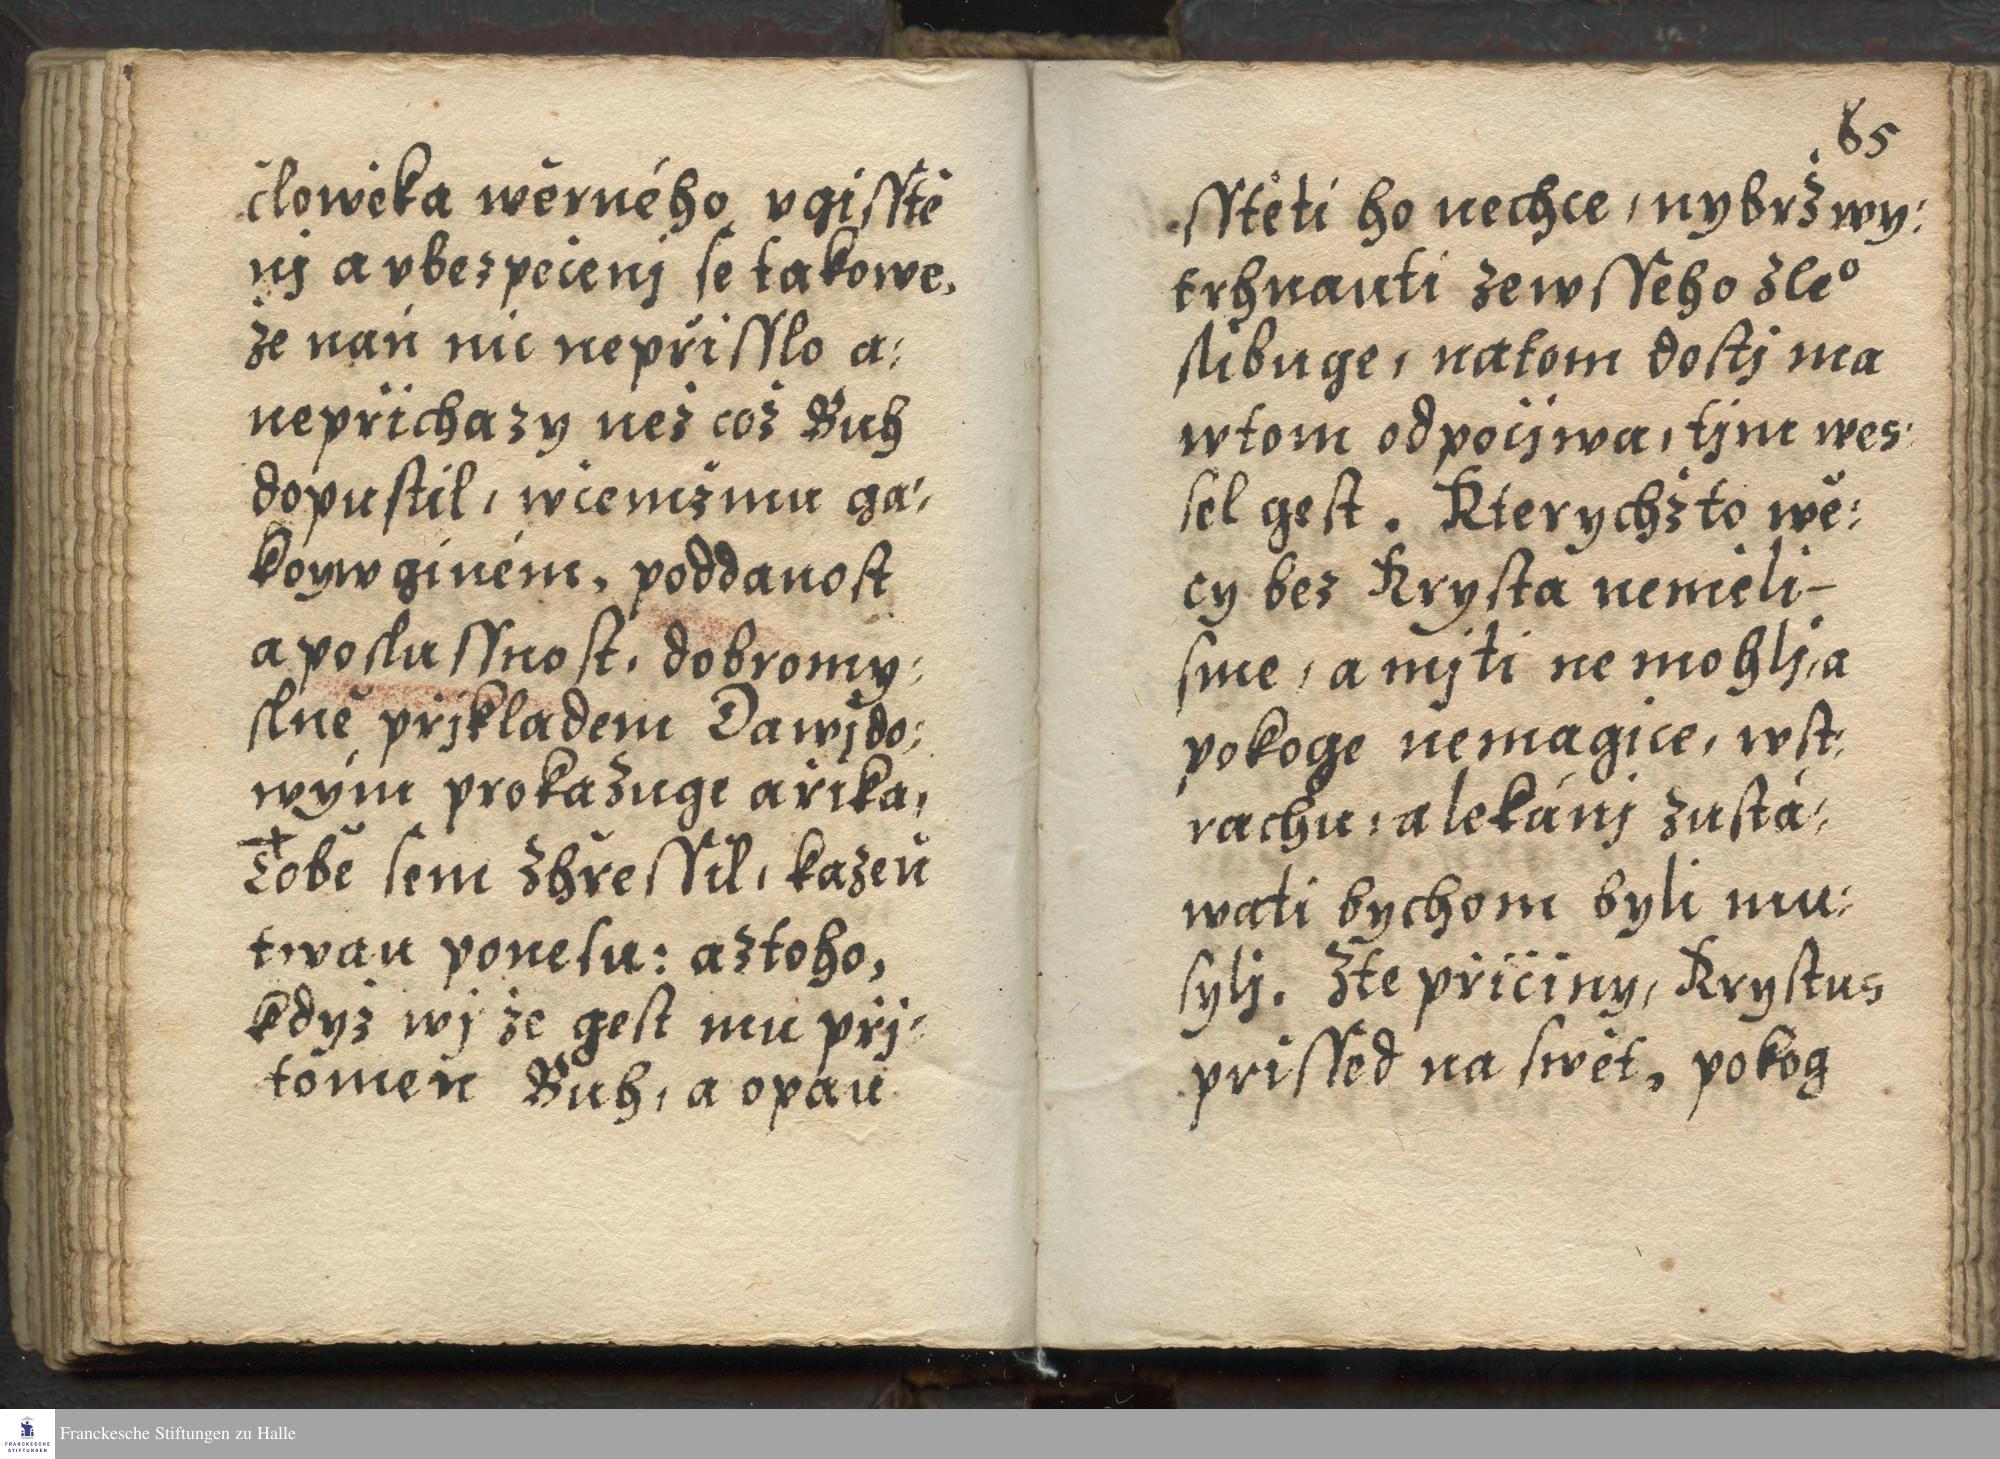 člowěka wěrného vgiſſtě
nj a vbezpečenj ſe takowe,
že naň nic nepřiſſlo a:
nepřichazy než což Buh
dopuſtil, wčemžmu ga:
koyw giném, poddanoſt
a poſluſſnoſt, dobromy:
ſlně přjkladem Dawjdo:
wým prokazuge ařika,
Tobě ſem zhřeſſil, kazeň
twau poneſu: aztoho,
když wj že geſt mu přj:
tomen Buh, a opau
65
ſſtěti ho nechce, nybrž wy:
trhnauti zewſſeho zle°
ſlibuge, natom doſtj ma
wtom odpočjwa, tjm wes:
ſel geſt. Kterychžto wě:
cy bez Kryſta neměli-
ſme, a mjti ne mohlj, a
pokoge nemagice, wſt:
rachu, a lekánj zuſtá:
wati bychom byli mu:
ſylj. Zte přičiny, Kryſtus
priſſed na ſwět, pokog
Franckesche Stiftungen zu Halle
FRANCKESCHE
STIFTUNGEN